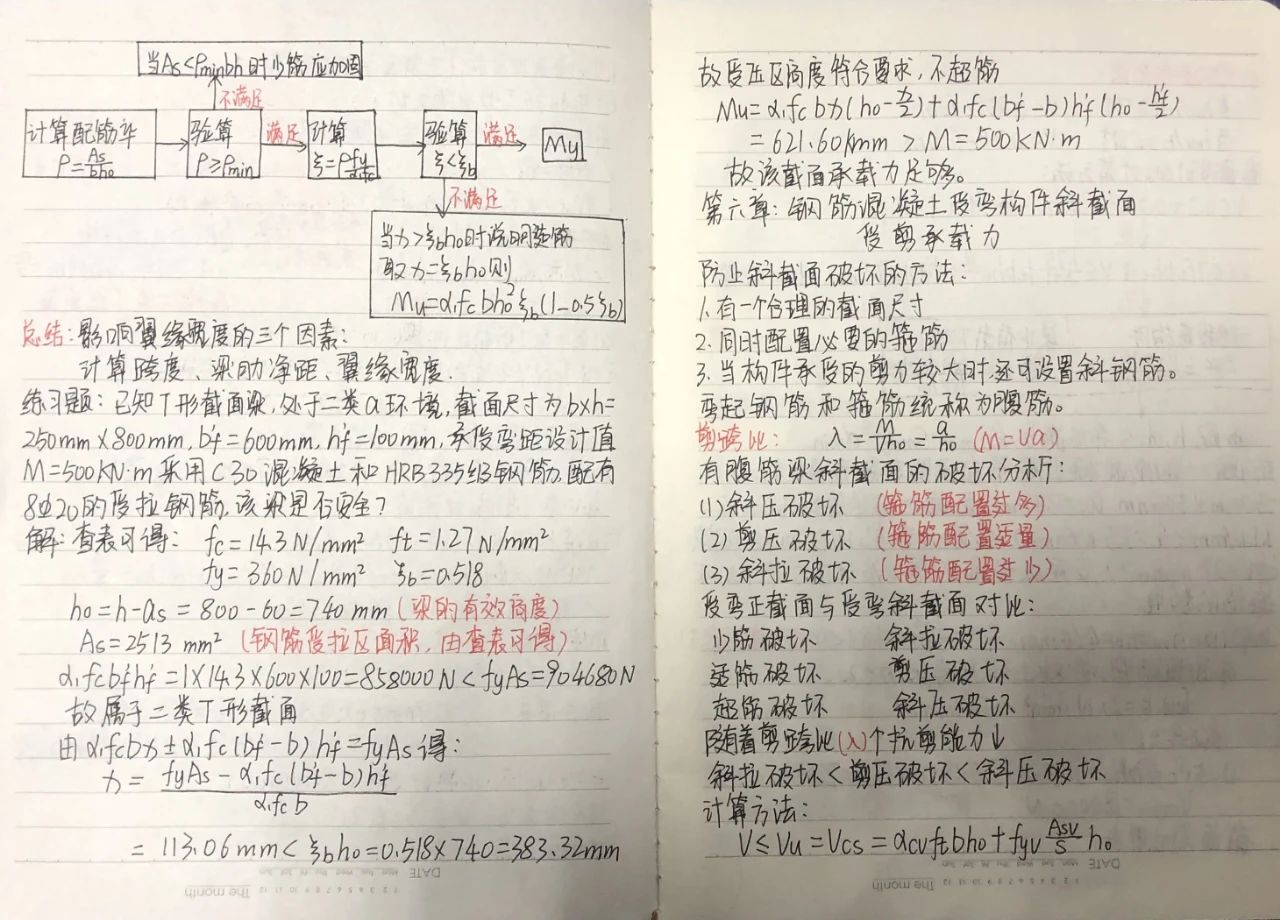 当As<ρminbh时少筋应加固
不满足
计算配筋率
ρ=As/bh₀
验算
ρ≥ρmin
满足
计算
ξ=ρfy/α₁fc
验算
ξ<ξb
满足
Mu
不满足
当x>ξbh₀时说明超筋
取x=ξbh₀则
Mu=α₁fcbh₀²ξb(1-0.5ξb)
总结:影响翼缘宽度的三个因素:
计算跨度、梁肋净距、翼缘宽度.
练习题:已知T形截面梁,处于二类a环境,截面尺寸为b×h=
250mm×800mm,b'f=600mm,h'f=100mm,承受弯距设计值
M=500KN·m采用C30混凝土和HRB335级钢筋,配有
8ф20的受拉钢筋,该梁是否安全?
解:查表可得: fc=14.3N/mm² ft=1.27N/mm²
fy=360N/mm² ξb=0.518
h₀=h-as=800-60=740mm(梁的有效高度)
As=2513mm²(钢筋受拉区面积,由查表可得)
α₁fcb'fh'f=1×14.3×600×100=858000N<fyAs=904680N
故属于二类T形截面
由α₁fcbx±α₁fc(b'f-b)h'f=fyAs得:
x=fyAs-α₁fc(b'f-b)h'f/α₁fcb
=113.06mm<ξbh₀=0.518×740=383.32mm
故受压区高度符合要求,不超筋
Mu=α₁fcbx(h₀-x/2)+α₁fc(b'f-b)h'f(h₀-h'f/2)
=621.60kNm>M=500KN·m
故该截面承载力足够。
第六章:钢筋混凝土受弯构件斜截面
受剪承载力
防止斜截面破坏的方法:
1.有一个合理的截面尺寸
2.同时配置必要的箍筋
3.当构件承受的剪力较大时,还可设置斜钢筋。
弯起钢筋和箍筋统称为腹筋。
剪跨比: λ=M/Vh₀=a/h₀ (M=Va)
有腹筋梁斜截面的破坏分析:
(1)斜压破坏 (箍筋配置过多)
(2)剪压破坏 (箍筋配置适量)
(3)斜拉破坏 (箍筋配置过少)
受弯正截面与受弯斜截面对比:
少筋破坏 斜拉破坏
适筋破坏 剪压破坏
超筋破坏 斜压破坏
随着剪跨比(λ)个抗剪能力↓
斜拉破坏<剪压破坏<斜压破坏
计算方法:
V≤Vu=Vcs=αcvftbh₀+fyv Asv/s h₀
DATE
The month
DATE
The month